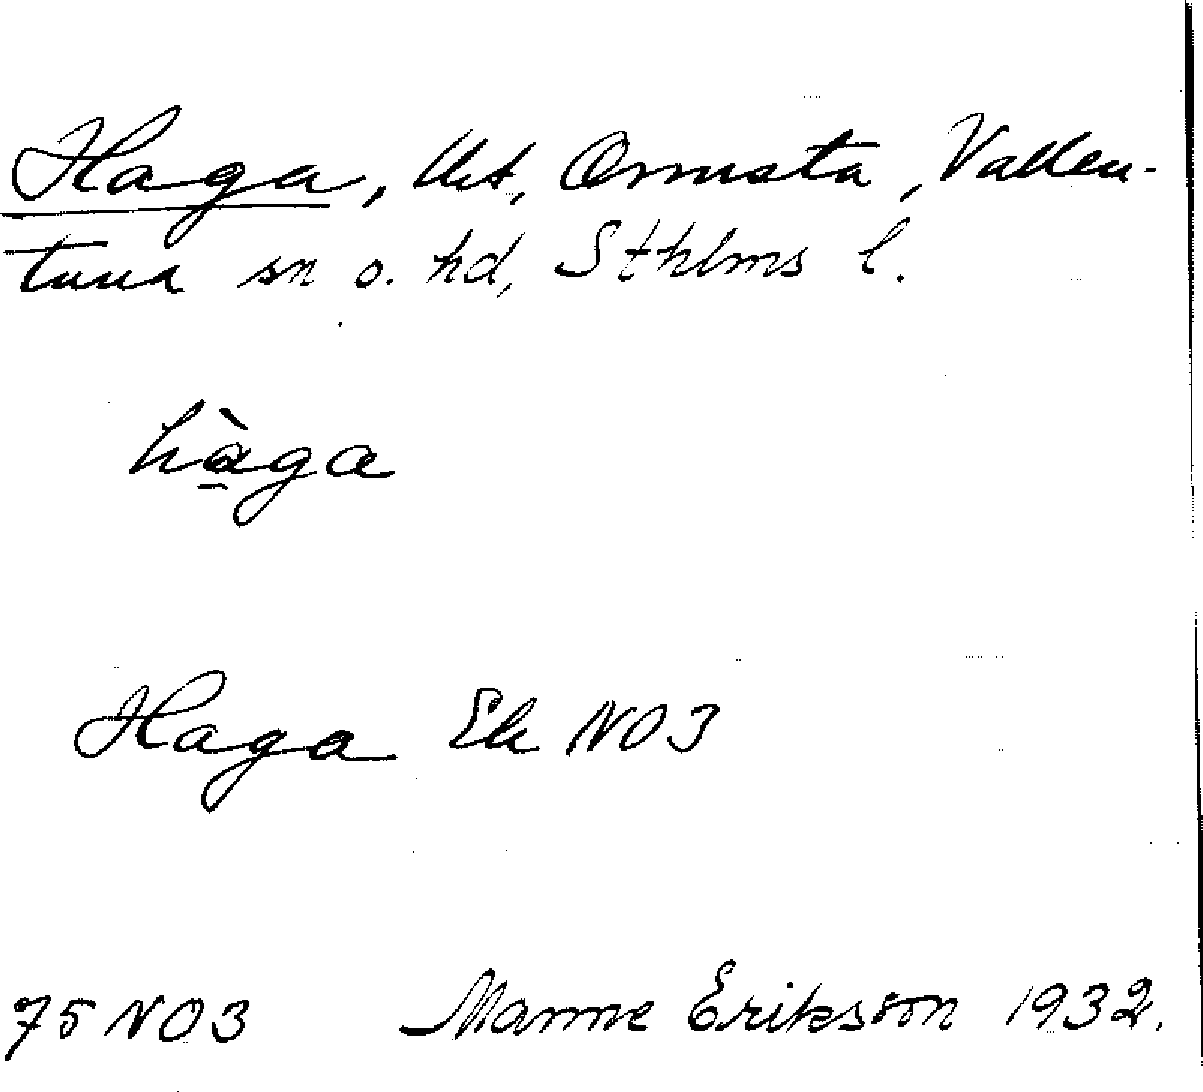 Haga, lht, Ormsta, Vallen-
tuna sn o. hd, Sthlms l.
hàga
Haga Ek NO3
75 NO3 Manne Eriksson 1932.